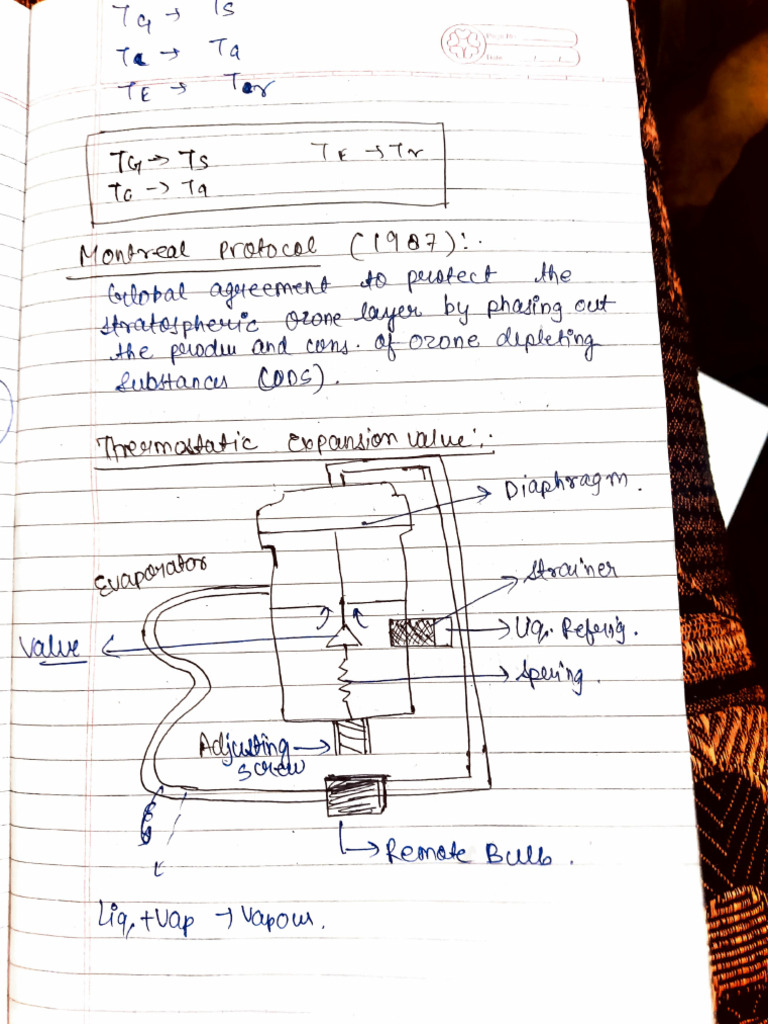 TG → TS
TC → Ta
TE → Tr
TG → TS TE → Tr
TC → Ta
Montreal Protocol (1987):-
Global agreement to protect the
stratospheric ozone layer by phasing out
the produ and cons. of ozone depleting
substances (ODS).
Thermostatic Expansion value:-
Diaphragm.
Evaporator
Strainer
Valve
Liq. Referig.
Spering.
Adjusting
screw
Remote Bulb.
Liq. + Vap → Vapour.